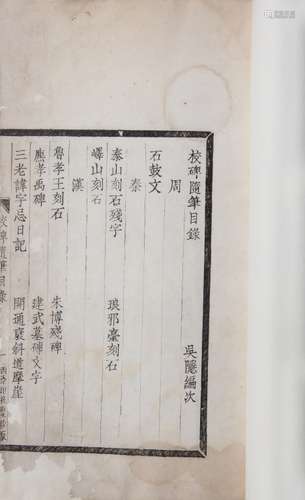 校碑隨筆目錄
周　吳隱編次
石鼓文
秦
泰山刻石殘字　琅邪臺刻石
嶧山刻石
漢
魯孝王刻石　朱博殘碑
麃孝禹碑　建武墓磚文字
三老諱字忌日記　開通褒斜道摩崖
校碑隨筆目錄　一　西泠印社